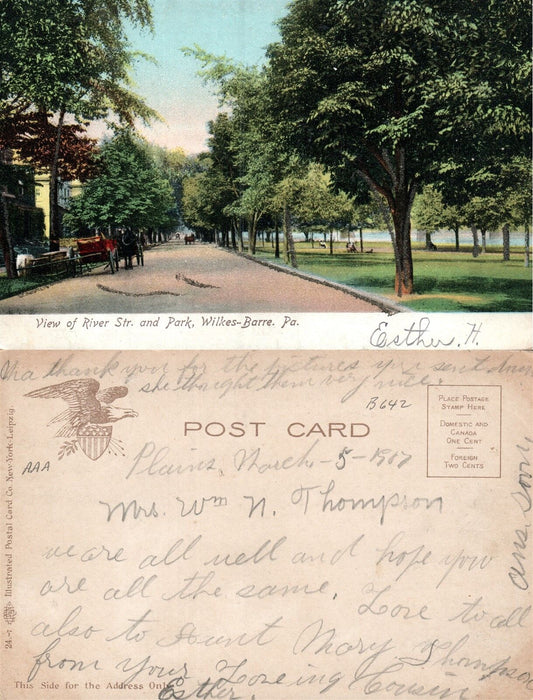 View of River Str. and Park, Wilkes-Barre. Pa.
Esther. H.
thank you for the pictures you sent
she thought them very nice.
B642
PLACE POSTAGE
STAMP HERE
DOMESTIC AND
CANADA
ONE CENT
FOREIGN
TWO CENTS
POST CARD
AAA
Plains, March - 5 - 1907
Mrs. Wm N. Thompson
we are all well and hope you
are all the same. Love to all
also to Aunt Mary Thompson
from your Loveing Cousin
Esther.
ans. soon
This Side for the Address Only
24-7 Illustrated Postal Card Co. New-York-Leipzig.